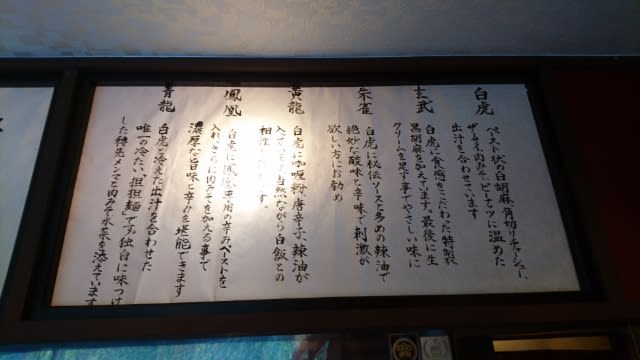 白虎
ペースト状の白胡麻、角切りチャーシュー、
ザーサイ、肉みそ、ピーナッツに温めた
出汁を合わせています
玄武
白虎に食感をこだわった特製
黒胡麻を加えています。最後に生
クリームを足す事でやさしい味に
朱雀
白虎に秘伝ソースと多めの辣油で
絶妙な酸味と辛味で刺激が
欲しい方にお勧め
黄龍
白虎に加喱粉、唐辛子、辣油が
入って
ながら白飯との
相性
鳳凰
白虎に鳳凰専用の辛みペーストを
入れ、さらに肉みそを加える事で
濃厚な旨味と辛みを堪能できます
青龍
白虎と冷えた出汁を合わせた
唯一の冷たい「担担麺」です。独自に味つけ
した特先メンマと肉みそ、水菜を添えています